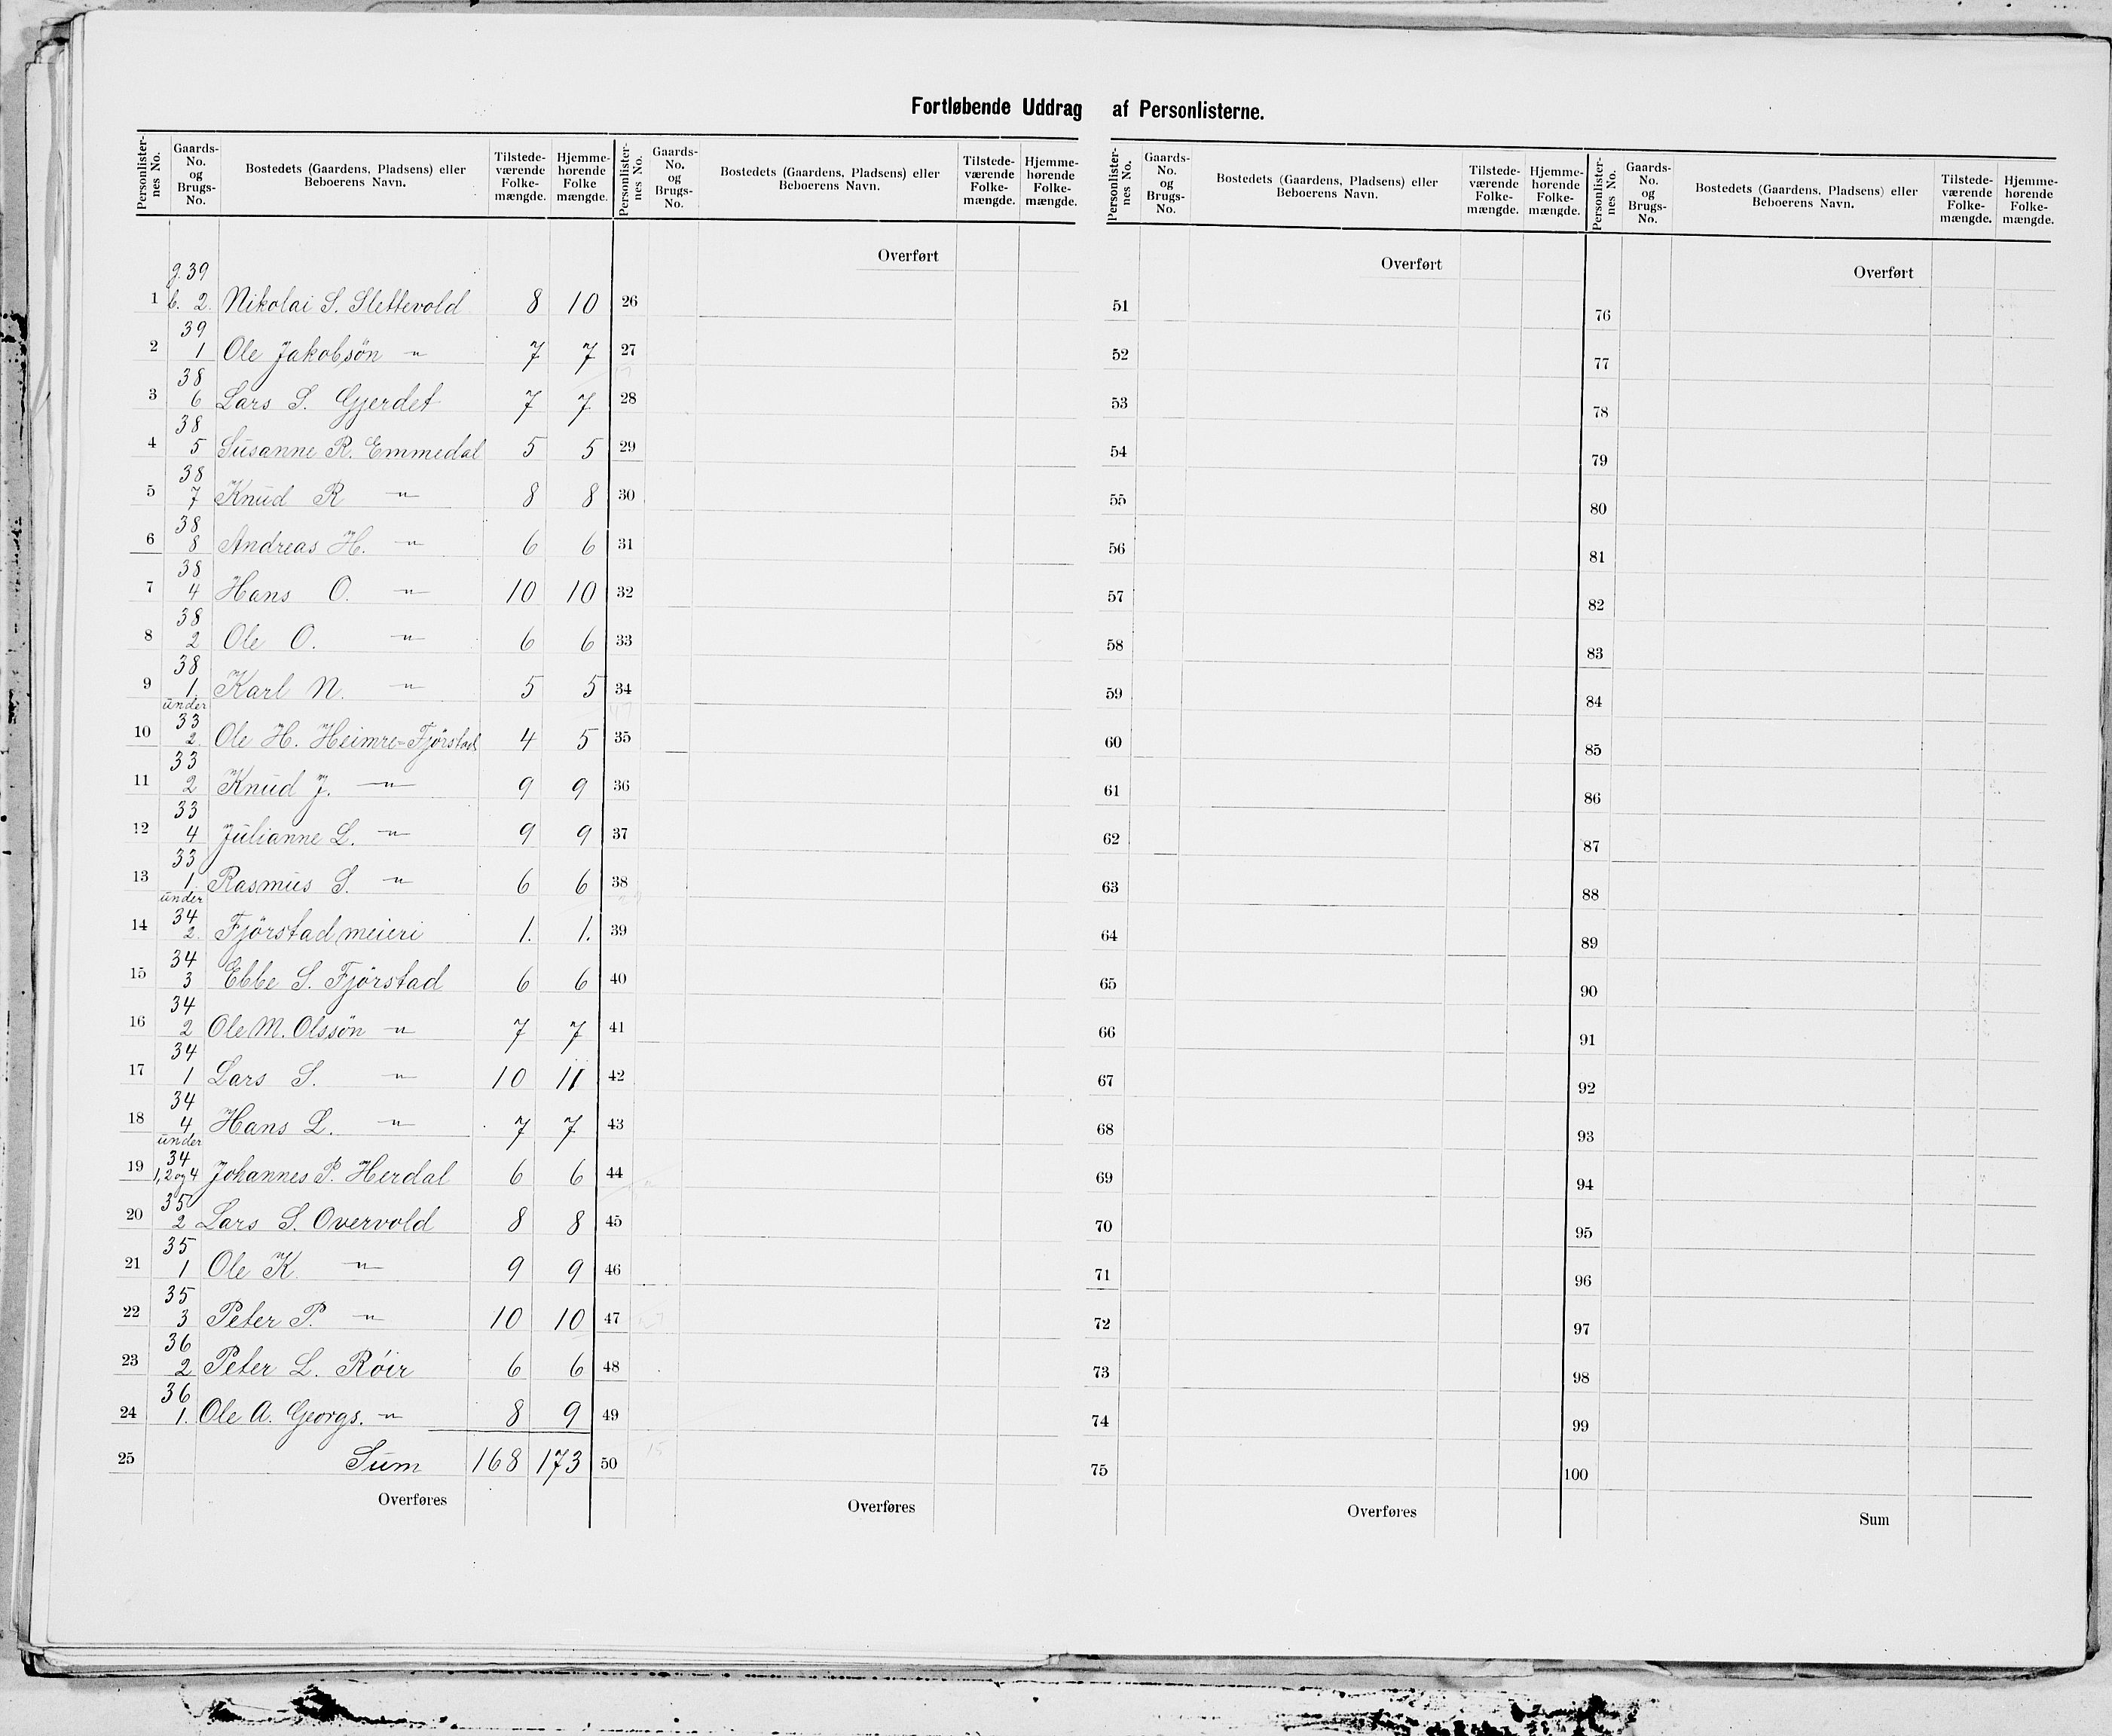 Fortløbende Uddrag af Personlisterne.
Personlister-nes No. Gaards-No. og Brugs-No. Bostedets (Gaardens, Pladsens) eller Beboerens Navn. Tilstede-værende Folke-mængde. Hjemme-hørende Folke mængde.
Personlister-nes No. Gaards-No. og Brugs-No. Bostedets (Gaardens, Pladsens) eller Beboerens Navn. Tilstede-værende Folke-mængde. Hjemme-hørende Folke-mængde.
Personlister-nes No. Gaards-No. og Brugs-No. Bostedets (Gaardens, Pladsens) eller Beboerens Navn. Tilstede-værende Folke-mængde. Hjemme-hørende Folke-mængde.
Personlister-nes No. Gaards-No. og Brugs-No. Bostedets (Gaardens, Pladsens) eller Beboerens Navn. Tilstede-værende Folke-mængde. Hjemme-hørende Folke-mængde.
Overført Overført Overført
g. 39
1 b. 2. Nikolai S. Slettevold 8 10 26 51 76
39
2 1 Ole Jakobsön " 7 7 27 52 77
38
3 6 Lars S. Gjerdet 7 7 28 53 78
38
4 5 Susanne R. Emmedal 5 5 29 54 79
38
5 7 Knud R " 8 8 30 55 80
38
6 8 Andreas H. " 6 6 31 56 81
38
7 4 Hans O. " 10 10 32 57 82
38
8 2 Ole O. " 6 6 33 58 83
38
9 1. Karl N. " 5 5 34 59 84
under
33
10 2. Ole H. Heimre-Fjørstad 4 5 35 60 85
33
11 2 Knud J. " 9 9 36 61 86
33
12 4 Julianne L. " 9 9 37 62 87
33
13 1. Rasmus S. " 6 6 38 63 88
under
34
14 2. Fjörstad meieri 1. 1. 39 64 89
34
15 3 Ebbe S. Fjörstad 6 6 40 65 90
34
16 2 Ole M. Olssön " 7 7 41 66 91
34
17 1 Lars S. " 10 11 42 67 92
34
18 4 Hans L. " 7 7 43 68 93
under
34
19 1, 2 og 4 Johannes P. Herdal 6 6 44 69 94
35
20 2 Lars S. Overvold 8 8 45 70 95
35
21 1 Ole K. " 9 9 46 71 96
35
22 3 Peter P. " 10 10 47 72 97
36
23 2 Peter L. Röir 6 6 48 73 98
36
24 1. Ole A. Georgs. " 8 9 49 74 99
25 Sum 168 173 50 75 100
Overføres Overføres Overføres Sum